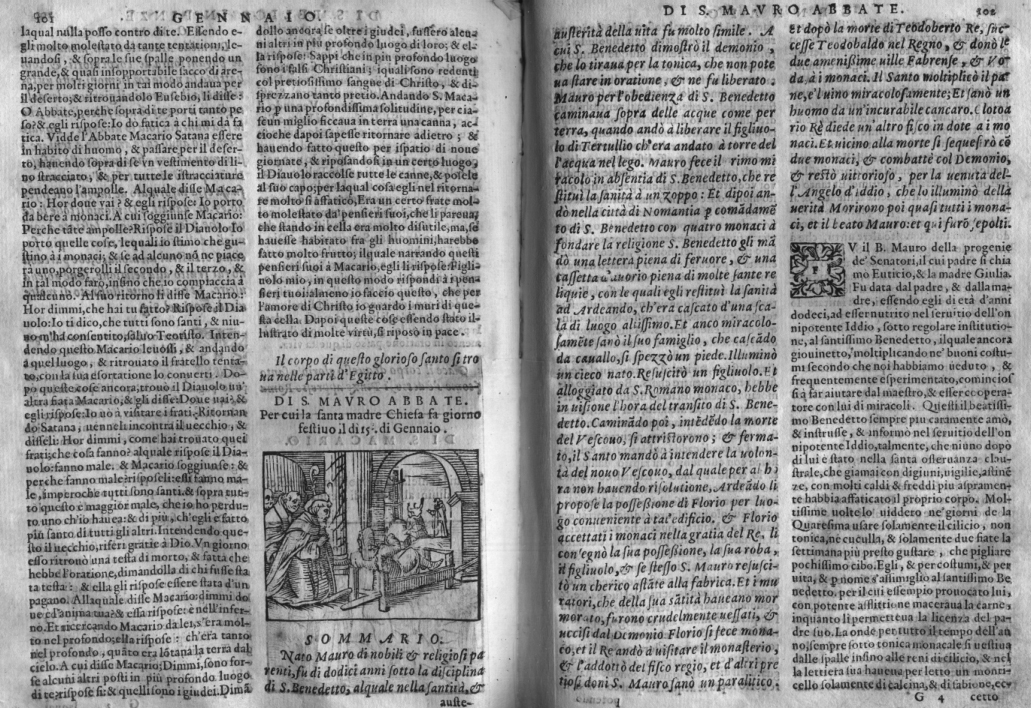 GENNAIO.
laqual nulla posso contro di te. Essendo e-
gli molto molestato da tante tentationi, le-
uandosi, & sopra le sue spalle ponendo un
grande, & quasi insopportabile sacco di are-
na, per molti giorni in tal modo andaua per
il deserto; & ritrouandolo Eusebio, li disse:
O Abbate, perche sopra di te porti tanto pe
so? & egli rispose: Io do fatica à chi mi dà fa
tica. Vidde l'Abbate Macario Satana essere
in habito di huomo, & passare per il deser-
to, hauendo sopra di se vn vestimento di li-
no stracciato, & per tutte le istracciature
pendeano l'ampolle. Alquale disse Maca-
rio: Hor doue vai? & egli rispose: Io porto
da bere a monaci. A cui soggiunse Macario:
Perche tãte ampolle? Rispose il Diauolo Io
porto quelle cose, lequali io stimo che gu-
stino à i monaci; & se ad alcuno nõ ne piace
rà uno, porgerolli il secondo, & il terzo, &
in tal modo farò, insino che io compiaccia à
qualcuno. Al suo ritorno li disse Macario:
Hor dimmi, che hai tu fatto? Rispose il Dia
uolo: Io ti dico, che tutti sono santi, & niu-
no m'ha consentito, saluo Tentisto. Inten-
dendo questo Macario leuossi, & andando
à quel luogo, & ritrouato il fratello tenta-
to, con la sua essortatione lo conuerti. Do-
po queste cose ancora, trouò il Diauolo un'
altra fiata Macario, & gli disse: Doue uai? &
egli rispose: Io uò à visitare i frati. Ritornan
do Satana, uenneli incontra il uecchio, &
disseli: Hor dimmi, come hai trouato quei
frati; che cosa fanno? alquale rispose il Dia-
uolo: fanno male. & Macario soggiunse: &
perche fanno male? risposeli: essi fanno ma-
le, imperoche tutti sono santi. & sopra tut-
to questo è maggior male, che io ho perdu-
to uno ch'io hauea: & di più, ch'egli è fatto
più santo di tutti gli altri. Intendendo que-
sto il uecchio, riferì gratie à Dio. Vn giorno
esso ritrouò una testa di morto, & fatta che
hebbe l'oratione, dimandolla di chi fusse sta
ta testa: & ella gli rispose essere stata d'un
pagano. Allaquale disse Macario: dimmi do
ue è l'anima tua? & essa rispose: è nell'infer-
no. Et ricercando Macario da lei, s'era mol-
to nel profondo; ella rispose: ch'era tanto
nel profondo, quãto era lõtana la terra dal
cielo. A cui disse Macario; Dimmi, sono for-
se alcuni altri posti in più profondo luogo
di te; rispose si: & quelli sono i giudei. Dimã
dollo ancora se oltre i giudei, fussero alcu-
ni altri in più profondo luogo di loro; & el-
la rispose: Sappi che in più profondo luogo
sono i falsi Christiani; iquali sono redenti
col pretiosissimo sangue di Christo, & di-
sprezzano tanto pretio. Andando S. Maca-
rio p una profondissima solitudine, per cia-
scun miglio ficcaua in terra una canna, ac-
cioche dapoi sapesse ritornare adietro; &
hauendo fatto questo per ispatio di noue
giornate, & riposandosi in un certo luogo,
il Diauolo raccolse tutte le canne, & posele
al suo capo; per laqual cosa egli nel ritorna-
re molto si affaticò. Era un certo frate mol-
to molestato da' pensieri suoi, che li pareua;
che stando in cella era molto disutile, ma, se
hauesse habitato fra gli huomini, harebbe
fatto molto frutto; ilquale narrando questi
pensieri suoi à Macario, egli li rispose: Figli-
uolo mio, in questo modo rispondi à i pen-
sieri tuoi: almeno io faccio questo, che per
l'amore di Christo io guardo i muri di que-
sta cella. Dapoi queste cose essendo stato il-
lustrato di molte virtù, si riposò in pace.
Il corpo di questo glorioso santo si tro
ua nelle parti d'Egitto.
DI S. MAVRO ABBATE.
Per cui la santa madre Chiesa fa giorno
festiuo il di 15. di Gennaio.
SOMMARIO.
Nato Mauro di nobili & religiosi pa
renti, fu di dodici anni sotto la disciplina
di S. Benedetto, alquale nella santità, &
auste-
DI S. MAVRO ABBATE.
austerità della uita fu molto simile. A
cui S. Benedetto dimostrò il demonio,
che lo tiraua per la tonica, che non pote
ua stare in oratione, & ne fu liberato.
Mauro per l'obedienza di S. Benedetto
caminaua sopra delle acque come per
terra, quando andò à liberare il figliuo-
lo di Tertullio ch'era andato à torre del
l'acqua nel lego. Mauro fece il rimo mi
racolo in absentia di S. Benedetto, che re
stituì la sanità à un zoppo: Et dipoi an-
dò nella città di Nomantia p comãdamẽ
to di S. Benedetto con quattro monaci à
fondare la religione S. Benedetto gli mã
dò una lettera piena di feruore, & una
cassetta d'auorio piena di molte sante re
liquie, con le quali egli restituì la sanità
ad Ardeando, ch'era cascato d'una sca-
la di luogo altissimo. Et anco miracolo-
samẽte sanò il suo famiglio, che cascãdo
da cauallo, si spezzò un piede. Illuminò
un cieco nato. Resuscitò un figliuolo. Et
alloggiato da S. Romano monaco, hebbe
in uisione l'hora del transito di S. Bene-
detto. Caminãdo poi, intẽdẽdo la morte
del Vescouo, si attristorono; & ferma-
to, il Santo mandò à intendere la uolon-
tà del nouo Vescouo, dal quale per al h
ra non hauendo risolutione, Ardeãdo li
propose la possessione di Florio per luo-
go conueniente à tal'edificio. & Florio
accettati i monaci nella gratia del Re, li
consegnò la sua possessione, la sua roba,
il figliuolo, & se stesso S. Mauro resusci-
tò un cherico astãte alla fabrica. Et i mu
ratori, che della sua sãtità haueano mor
morato, furono crudelmente uessati, &
uccisi dal Demonio Florio si fece mona-
co, et il Re andò à uisitare il monasterio,
& l'addottò del fisco regio, et d'altri pre
tiosi doni S. Mauro sanò un paralitico.
302
Et dopò la morte di Teodoberto Re, suc
cesse Teodobaldo nel Regno, & donò le
due amenissime uille Fabrense, & Vo
da, à i monaci. Il Santo moltiplicò il pa
ne, e'l uino miracolosamente; Et sanò un
huomo da un'incurabile cancaro. Clotoa
rio Rè diede un altro fisco in dote a i mo
naci. Et uicino alla morte si sequestrò cõ
due monaci, & combattè col Demonio,
& restò uitorioso, per la venuta del-
l'Angelo d'iddio, che lo illuminò della
uerità Morirono poi quasi tutti i mona-
ci, et il beato Mauro: et qui furò sepolti.
FV il B. Mauro della progenie
de' Senatori, il cui padre si chia
mo Euticio, & la madre Giulia.
Fu data dal padre, & dalla ma-
dre, essendo egli di età d'anni
dodeci, ad esser nutrito nel seruitio dell'on
nipotente Iddio, sotto regolare institutio-
ne, al santissimo Benedetto, ilquale ancora
giouinetto, moltiplicando ne' buoni costu-
mi secondo che noi habbiamo ueduto, &
frequentemente esperimentato, cominciossi
à far aiutare dal maestro, & esser coopera-
tore con lui di miracoli. Questi il beatissi-
mo Benedetto sempre più caramente amò,
& instrusse, & informò nel seruitio dell'on
nipotente Iddio, talmente, che niuno dopo
di lui è stato nella santa osseruanza clau-
strale, che giamai con digiuni, uigilie, astinẽ
ze, con molti caldi & freddi più aspramen-
te habbia affaticato il proprio corpo. Mol-
tissime uolte lo uiddero ne' giorni de la
Quaresima usare solamente il cilicio, non
tonica, ne cuculla, & solamente due fiate la
settimana più presto gustare, che pigliare
pochissimo cibo. Egli, & per costumi, & per
uita, & p nome s'assimigliò al santissimo Be
nedetto, per il cui essempio prouocato lui,
con potente afflittione maceraua la carne,
inquanto li permetteua la licenza del pa-
dre suo. La onde per tutto il tempo dell'an
no, sempre sotto tonica monacale si uestiua
dalle spalle insino alle reni di cilicio, & nel
la lettiera sua hauena per letto un monti-
cello solamente di calcina, & di sabione, ec-
G 4
cetto